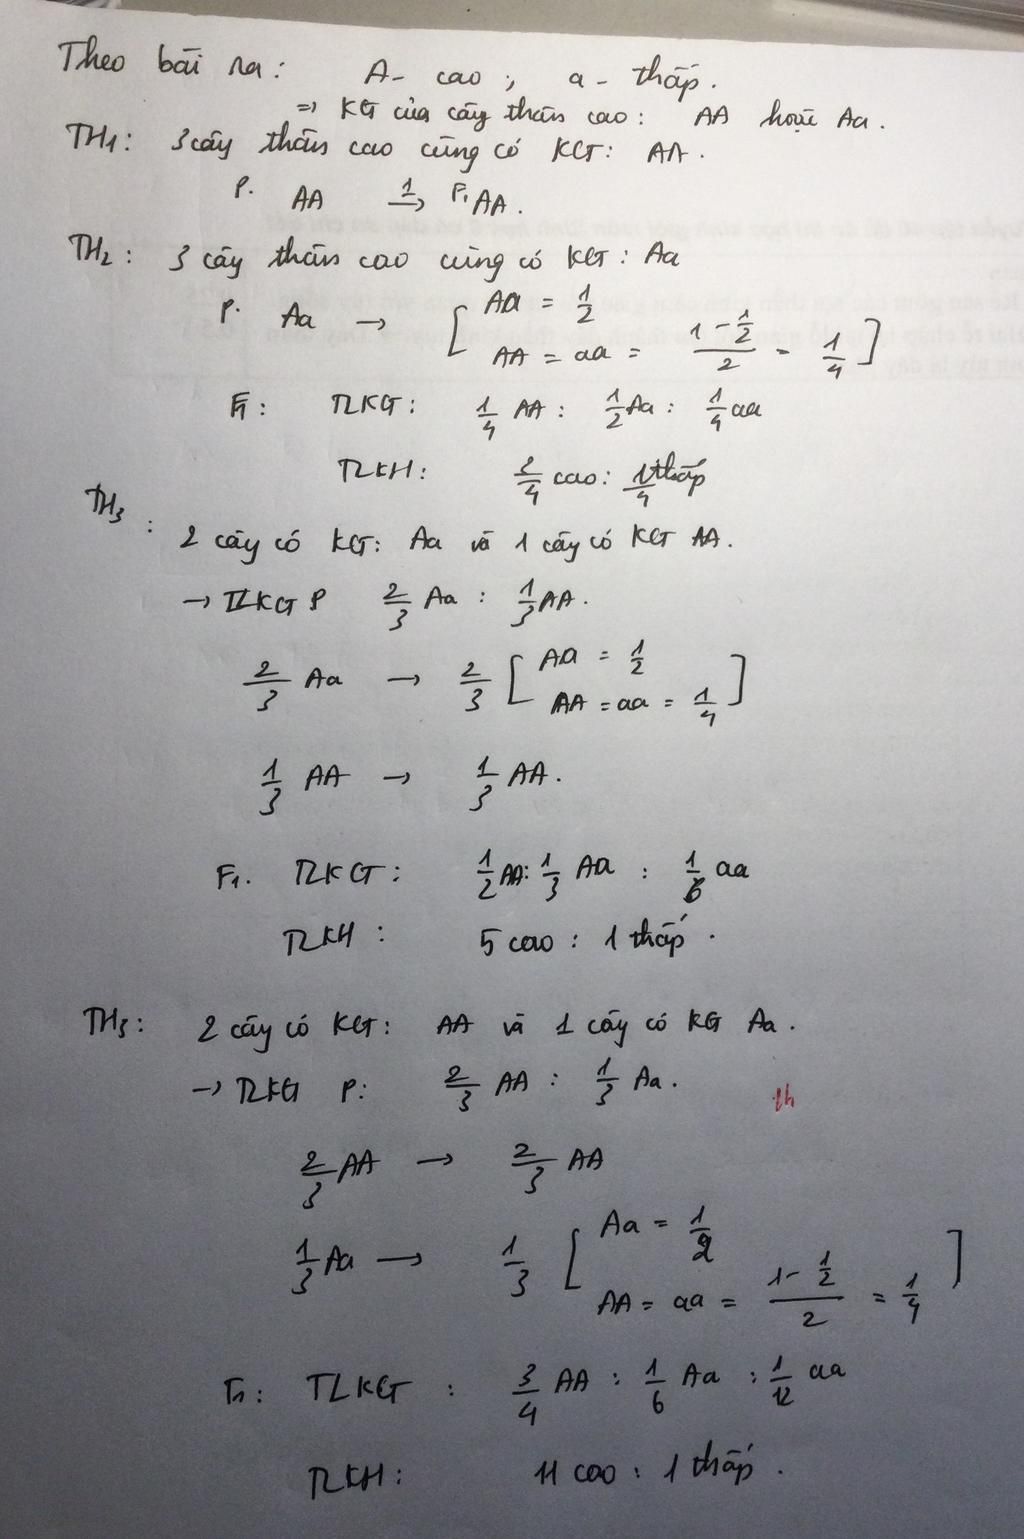 Theo bài ra: A- cao ; a- thấp.
=> KG của cây thân cao: AA hoặc Aa.
TH1: 3 cây thân cao cùng có KG: AA.
P. AA → F1 AA.
TH2: 3 cây thân cao cùng có KG: Aa
P. Aa → [ Aa = 1/2
AA = aa = (1 - 1/2)/2 = 1/4 ]
F1: TLKG: 1/4 AA : 1/2 Aa : 1/4 aa
TLKH: 3/4 cao : 1/4 thấp
TH3 :
2 cây có KG: Aa và 1 cây có KG AA.
→ TLKG P 2/3 Aa : 1/3 AA.
2/3 Aa → 2/3 [ Aa = 1/2
AA = aa = 1/4 ]
1/3 AA → 1/3 AA.
F1. TLKG: 1/2 AA : 1/3 Aa : 1/6 aa
TLKH : 5 cao : 1 thấp .
TH3: 2 cây có KG: AA và 1 cây có KG Aa.
→ TLKG P: 2/3 AA : 1/3 Aa.
2/3 AA → 2/3 AA
1/3 Aa → 1/3 [ Aa = 1/2
AA = aa = (1 - 1/2)/2 = 1/4 ]
F1: TLKG : 3/4 AA : 1/6 Aa : 1/12 aa
TLKH: 11 cao : 1 thấp .